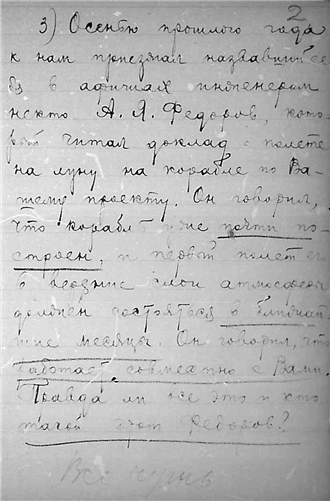 2
3) Осенью прошлого года
к нам приезжал назвавший се
бя в афишах инженером
некто А. Я. Федоров, кото-
рый читал доклад о полете
на луну на корабле по Ва-
шему проекту. Он говорил,
что корабль уже почти по-
строен, и первый полет
в верхние слои атмосферы
должен состояться в ближай-
шие месяцы. Он говорил, что
работает совместно с Вами.
Правда ли все это и кто
такой этот Федоров?
Все